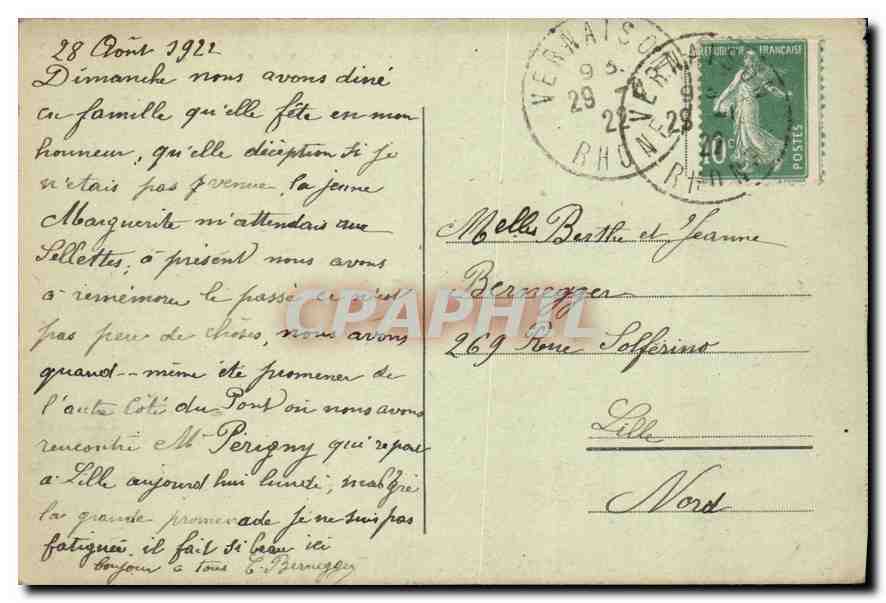 28 Août 1922
Dimanche nous avons diné
en famille qu'elle fête en mon
honneur, qu'elle déception si je
n'etais pas venue, la jeune
Marguerite m'attendais aux
Sellettes, à présent nous avons
à remémorer le passé ce n'est
pas peu de choses, nous avons
quand-même été promener de
l'autre Côté du Pont où nous avons
rencontré Mr Périgny qui repart
à Lille aujourd hui lundi, malgré
la grande promenade je ne suis pas
fatiguée. il fait si beau ici
bonjour a tous E. Bernegger
VERNAISON
9
29
22
RHONE
VERNAISON
RHONE
REPUBLIQUE FRANÇAISE
10c
POSTES
Melles Berthe et Jeanne
Bernegger
269 Rue Solférino
Lille
Nord
CPAPHIL